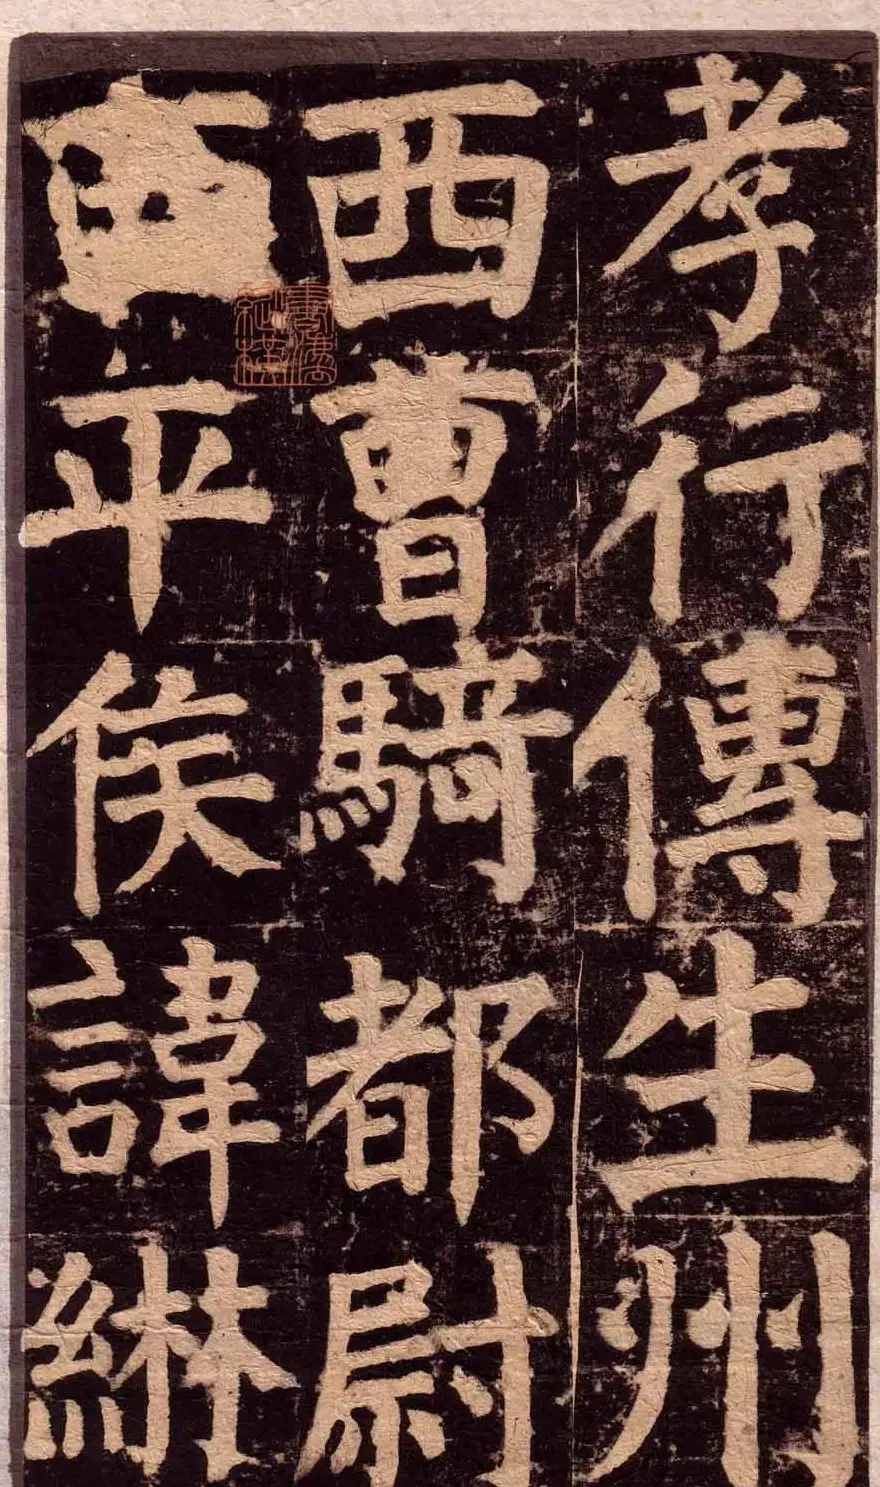 孝行傳生州
西曹騎都尉
西平侯諱綝